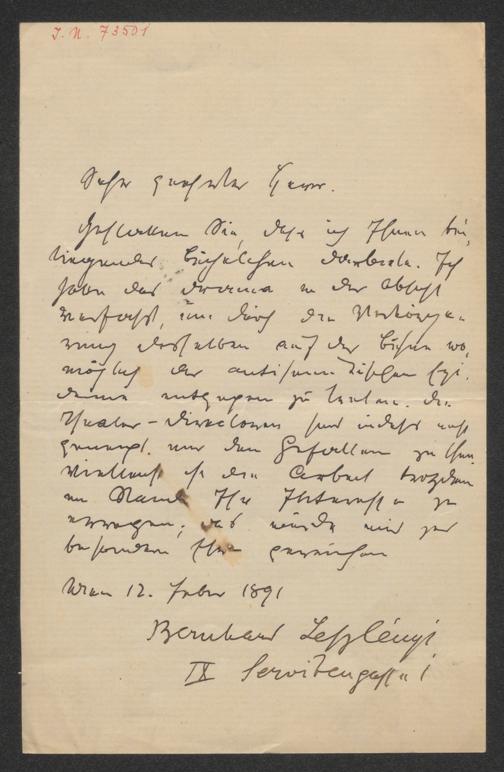 J. N. 73501
Sehr geehrter Herr.
Gestatten Sie, dass ich Ihnen bei-
liegendes Büchelchen darbiete. Ich
habe das Drama in der Absicht
verfasst, um durch die Verkörpe-
rung desselben auf der Bühne wo-
möglich der antisemitischen Epi-
demie entgegen zu treten. Die
Theater-Direktoren sind indess nicht
geneigt, mir den Gefallen zu thun
Vielleicht ist die Arbeit trotzdem
im Stande Ihr Interesse zu
erregen; das würde mir zur
besonderen Ehre gereichen
Wien 12. Feber 1891
Bernhard Leszlényi
IX Servitengasse 1